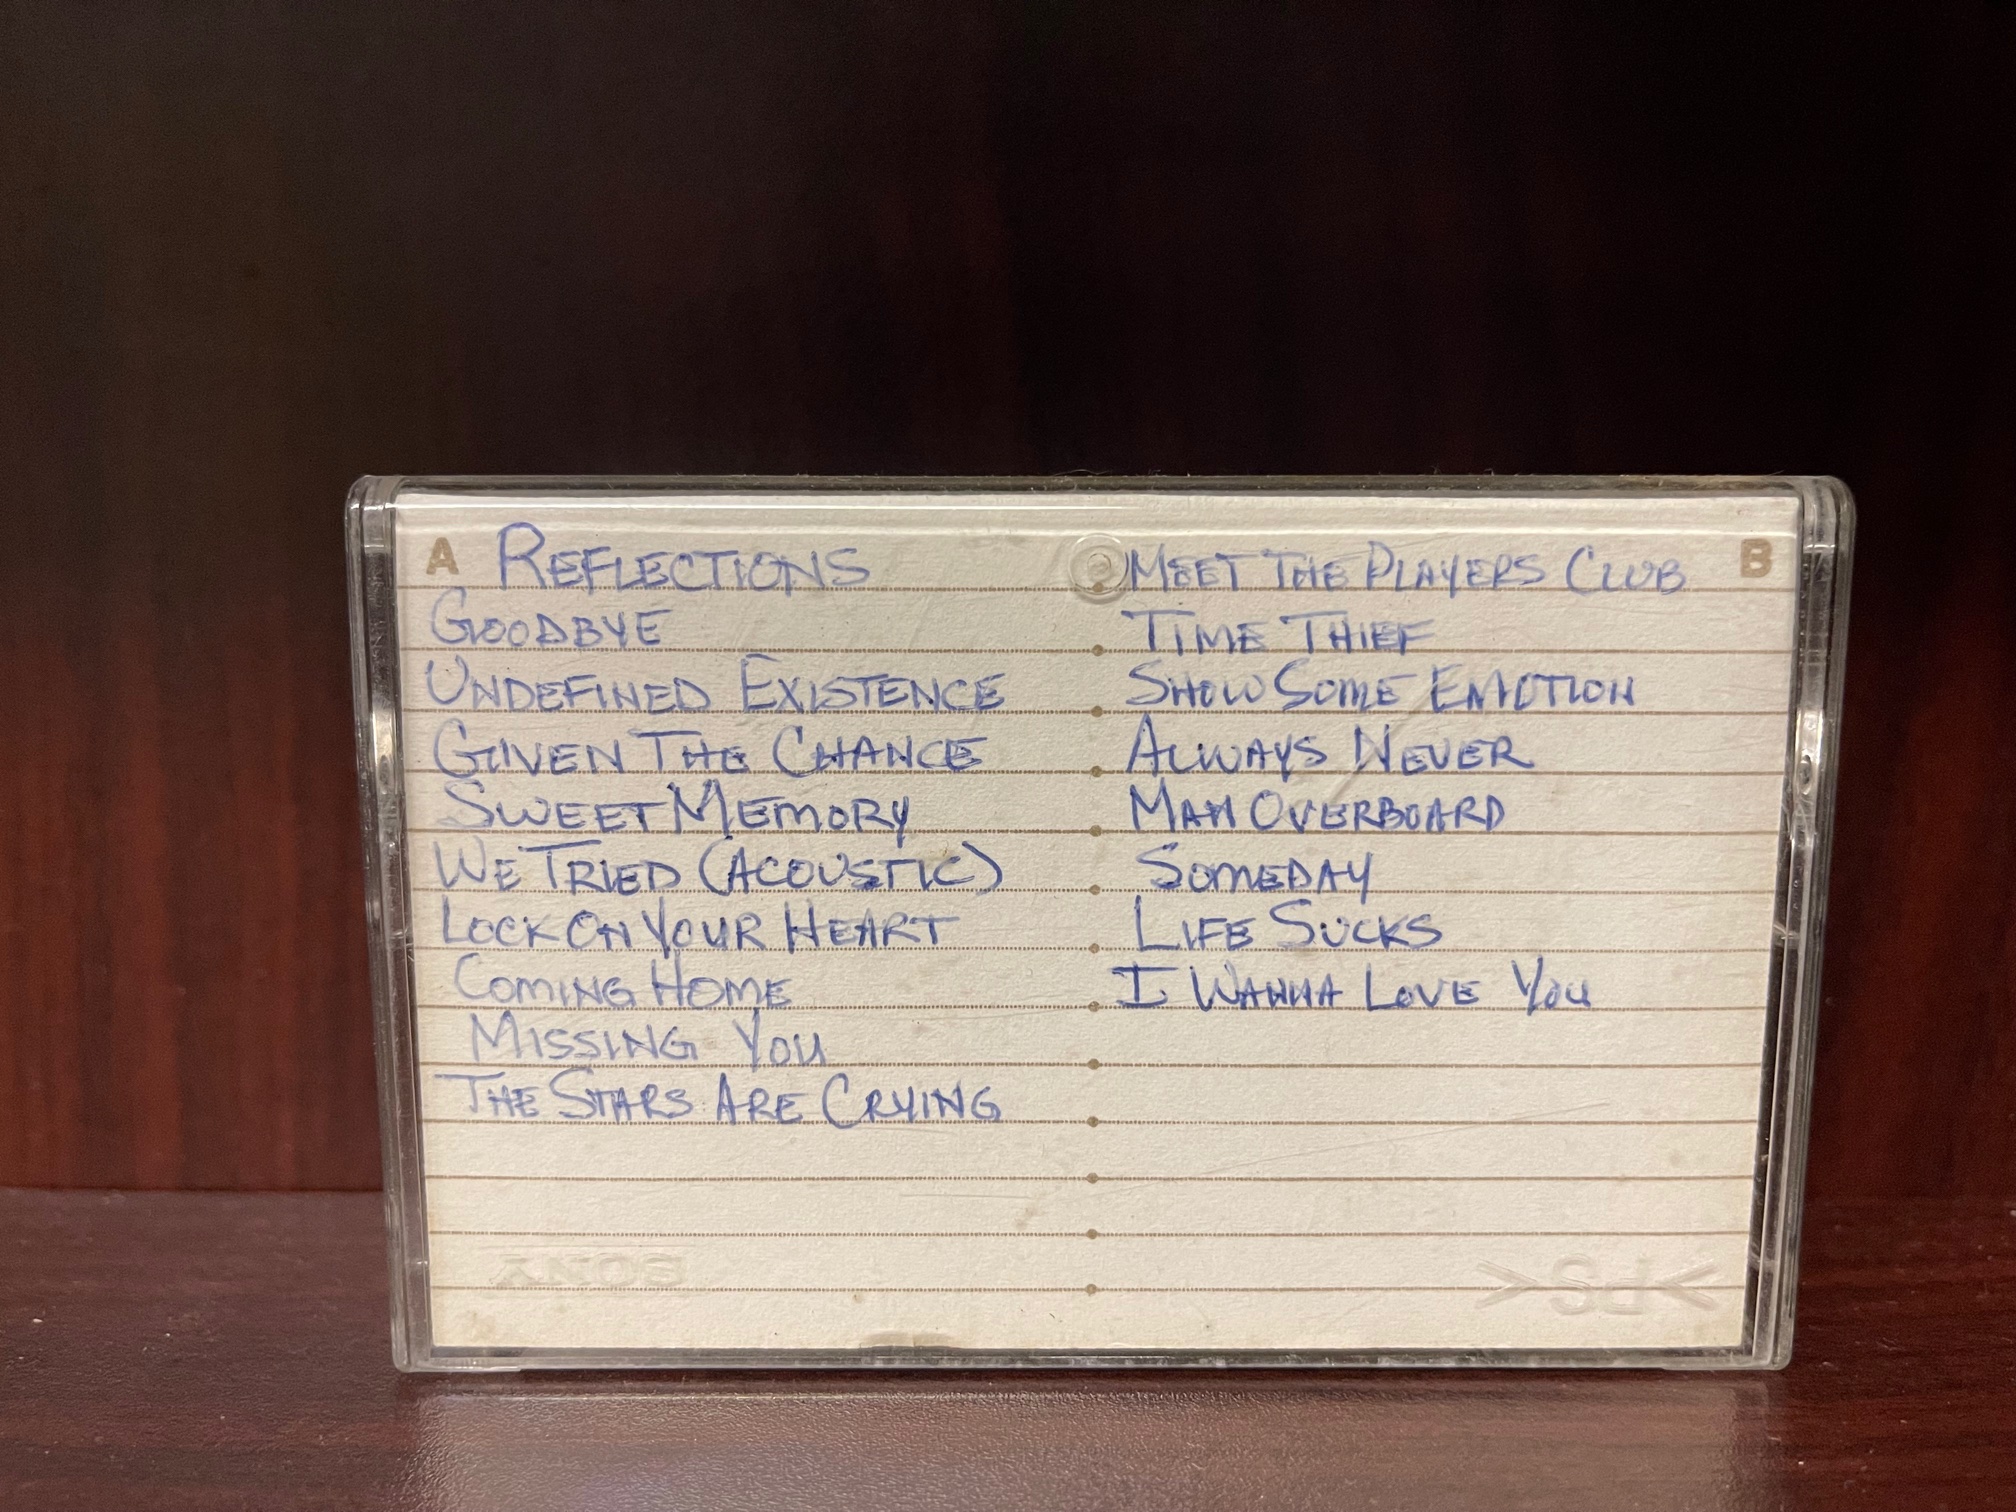 A REFLECTIONS
GOODBYE
UNDEFINED EXISTENCE
GIVEN THE CHANCE
SWEET MEMORY
WE TRIED (ACOUSTIC)
LOCK ON YOUR HEART
COMING HOME
MISSING YOU
THE STARS ARE CRYING
SONY
MEET THE PLAYERS CLUB B
TIME THIEF
SHOW SOME EMOTION
ALWAYS NEVER
MAN OVERBOARD
SOMEDAY
LIFE SUCKS
I WANNA LOVE YOU
>PS<